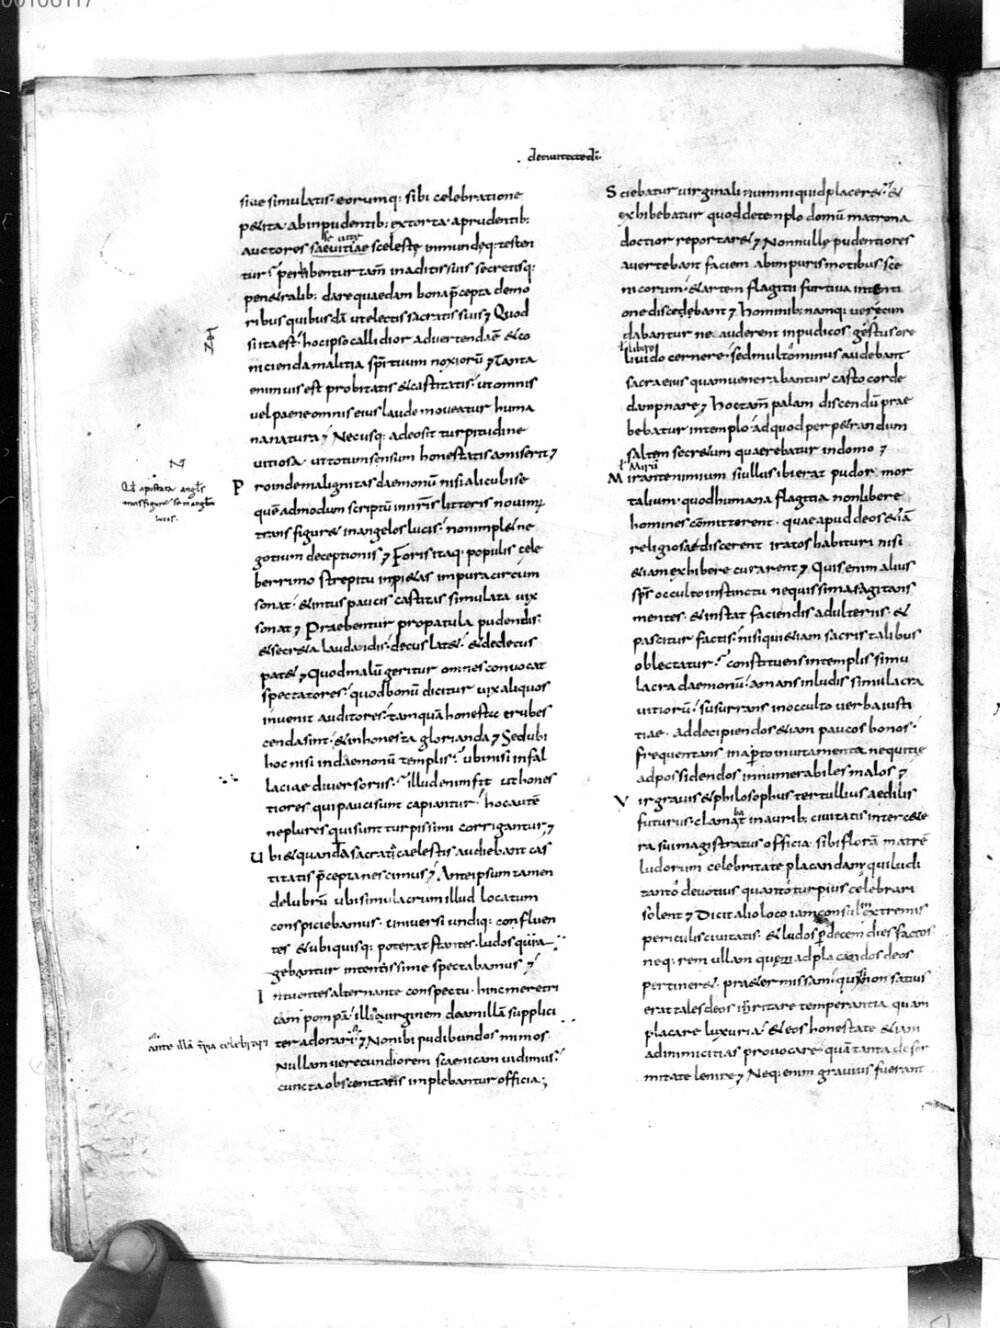 deciuitatedi
siue simulatis· eorumq: sibi celebratione
petita· abinpudentib: extorta· aprudentib:
auctores saeuitiae scelestę inmundęq: testen
tur· perhibentur tam̄ inaditis suis secretisq:
penetralib: dare quaedam bona p̄cepta demo
ribus quibusdā ut electis sacratis suis· Quod
si ita est· hoc ipso callidior aduertenda est & co
nuicenda malitia sp̄irituum noxiorū· Tanta
enim uis est probitatis & castitatis· ut omnis
uel paene omnis eius laude moueatur huma
na natura· Nec usq: adeo sit turpitudine
uitiosa ut totum sensum honestatis amiserit·
Proinde malignitas daemonū nisi alicubi se
quē admodum scriptū in nr̄is litteris nouim:
transfiguret in angelos lucis· non implet ne
gotium deceptionis· Foris itaq: populis cele
berrimo strepitu inpietas impura circum
sonat· & intus paucis castitas simulata uix
sonat· Praebentur propatula pudendis·
& secreta laudandis· decus latet· & dedecus
patet· Quod malū geritur omnes conuocat
spectatores· quod bonū dicitur uix aliquos
inuenit auditores· tamquā honesta erubes
cenda sint· & inhonesta glorianda· Sed ubi
hoc nisi in daemonū templis· ubi nisi in fal
laciae diuersoriis· illud enim fit ut hones
tiores qui pauci sunt capiantur· hoc autē
ne plures qui sunt turpissimi corrigantur·
Ubi & quando sacrati caelestis audiebant cas
titatis p̄cepta nescimus· Ante ipsum tamen
delubrū ubi simulacrum illud locatum
conspiciebamus· uniuersi undiq: confluen
tes & ubi quisq: poterat stantes· ludos qui a
gebantur intentissime spectabamus·
Intuentes alternante conspectu· hinc meretri
cam̄ pompā· illic uirginem deam illam supplici
ter adorari· Non ibi pudibundos mimos
nullam uerecundiorem scaenicam uidimus·
cuncta obscenitatis implebantur officia·
Sciebatur uirginali numini quid placeret· &
exhibebatur quod de templo domū matrona
doctior reportaret· Nonnullę pudentiores
auertebant faciem ab inpuris motibus sce
nicorum· & artem flagitii furtiua intenti
one discedebant· Hominib: namq: uerecun
dabantur ne auderent inpudicos gestus ore
liuido cernere· sed multo minus audebant
sacra eius quam uenerabantur casto corde
dampnare· Hoc tam̄ palam discendū prae
bebatur in templo· ad quod perpetrandum
saltem secretum quaerebatur in domo·
Mirante nimium si ullus ibi erat pudor mor
talium· quod humana flagitia non libere
homines cōmitterent· quae apud deos & iā
religiosae discerent iratos habituri nisi
& iam exhibere curarent· Quis enim alius
sp̄s occulto instinctu nequissimas agitans
mentes· & instat faciendis adulteriis· &
pascitur factis· nisi qui & iam sacris talibus
oblectatur· constituens in templis simu
lacra daemonū· amans in ludis simulacra
uitiorū· susurrans in occulto uerba iusti
tiae· ad decipiendos & iam paucos bonos·
frequentans in ap̄to inuitamenta nequitię
ad possidendos innumerabiles malos·
Vir grauis & philosophus tertullius aedilis
futurus· clamat in aurib: ciuitatis inter cete
ra sui magistratus officia· sibi florā matrē
ludorum celebritate placandam· qui ludi
tanto deuotius quanto turpius celebrari
solent· Dicit alio loco iam consul in extremis
periculis ciuitatis· & ludos p̄ decem dies factos·
neq: rem ullam quem ad placandos deos
pertineret· praetermissam· quasi non satius
erat tales deos irritare temperantia quam
placare luxuria· & eos honestate & iam
ad inimicitias prouocare quā tanta defor
mitate lenire· Neq: enim grauius fuerant